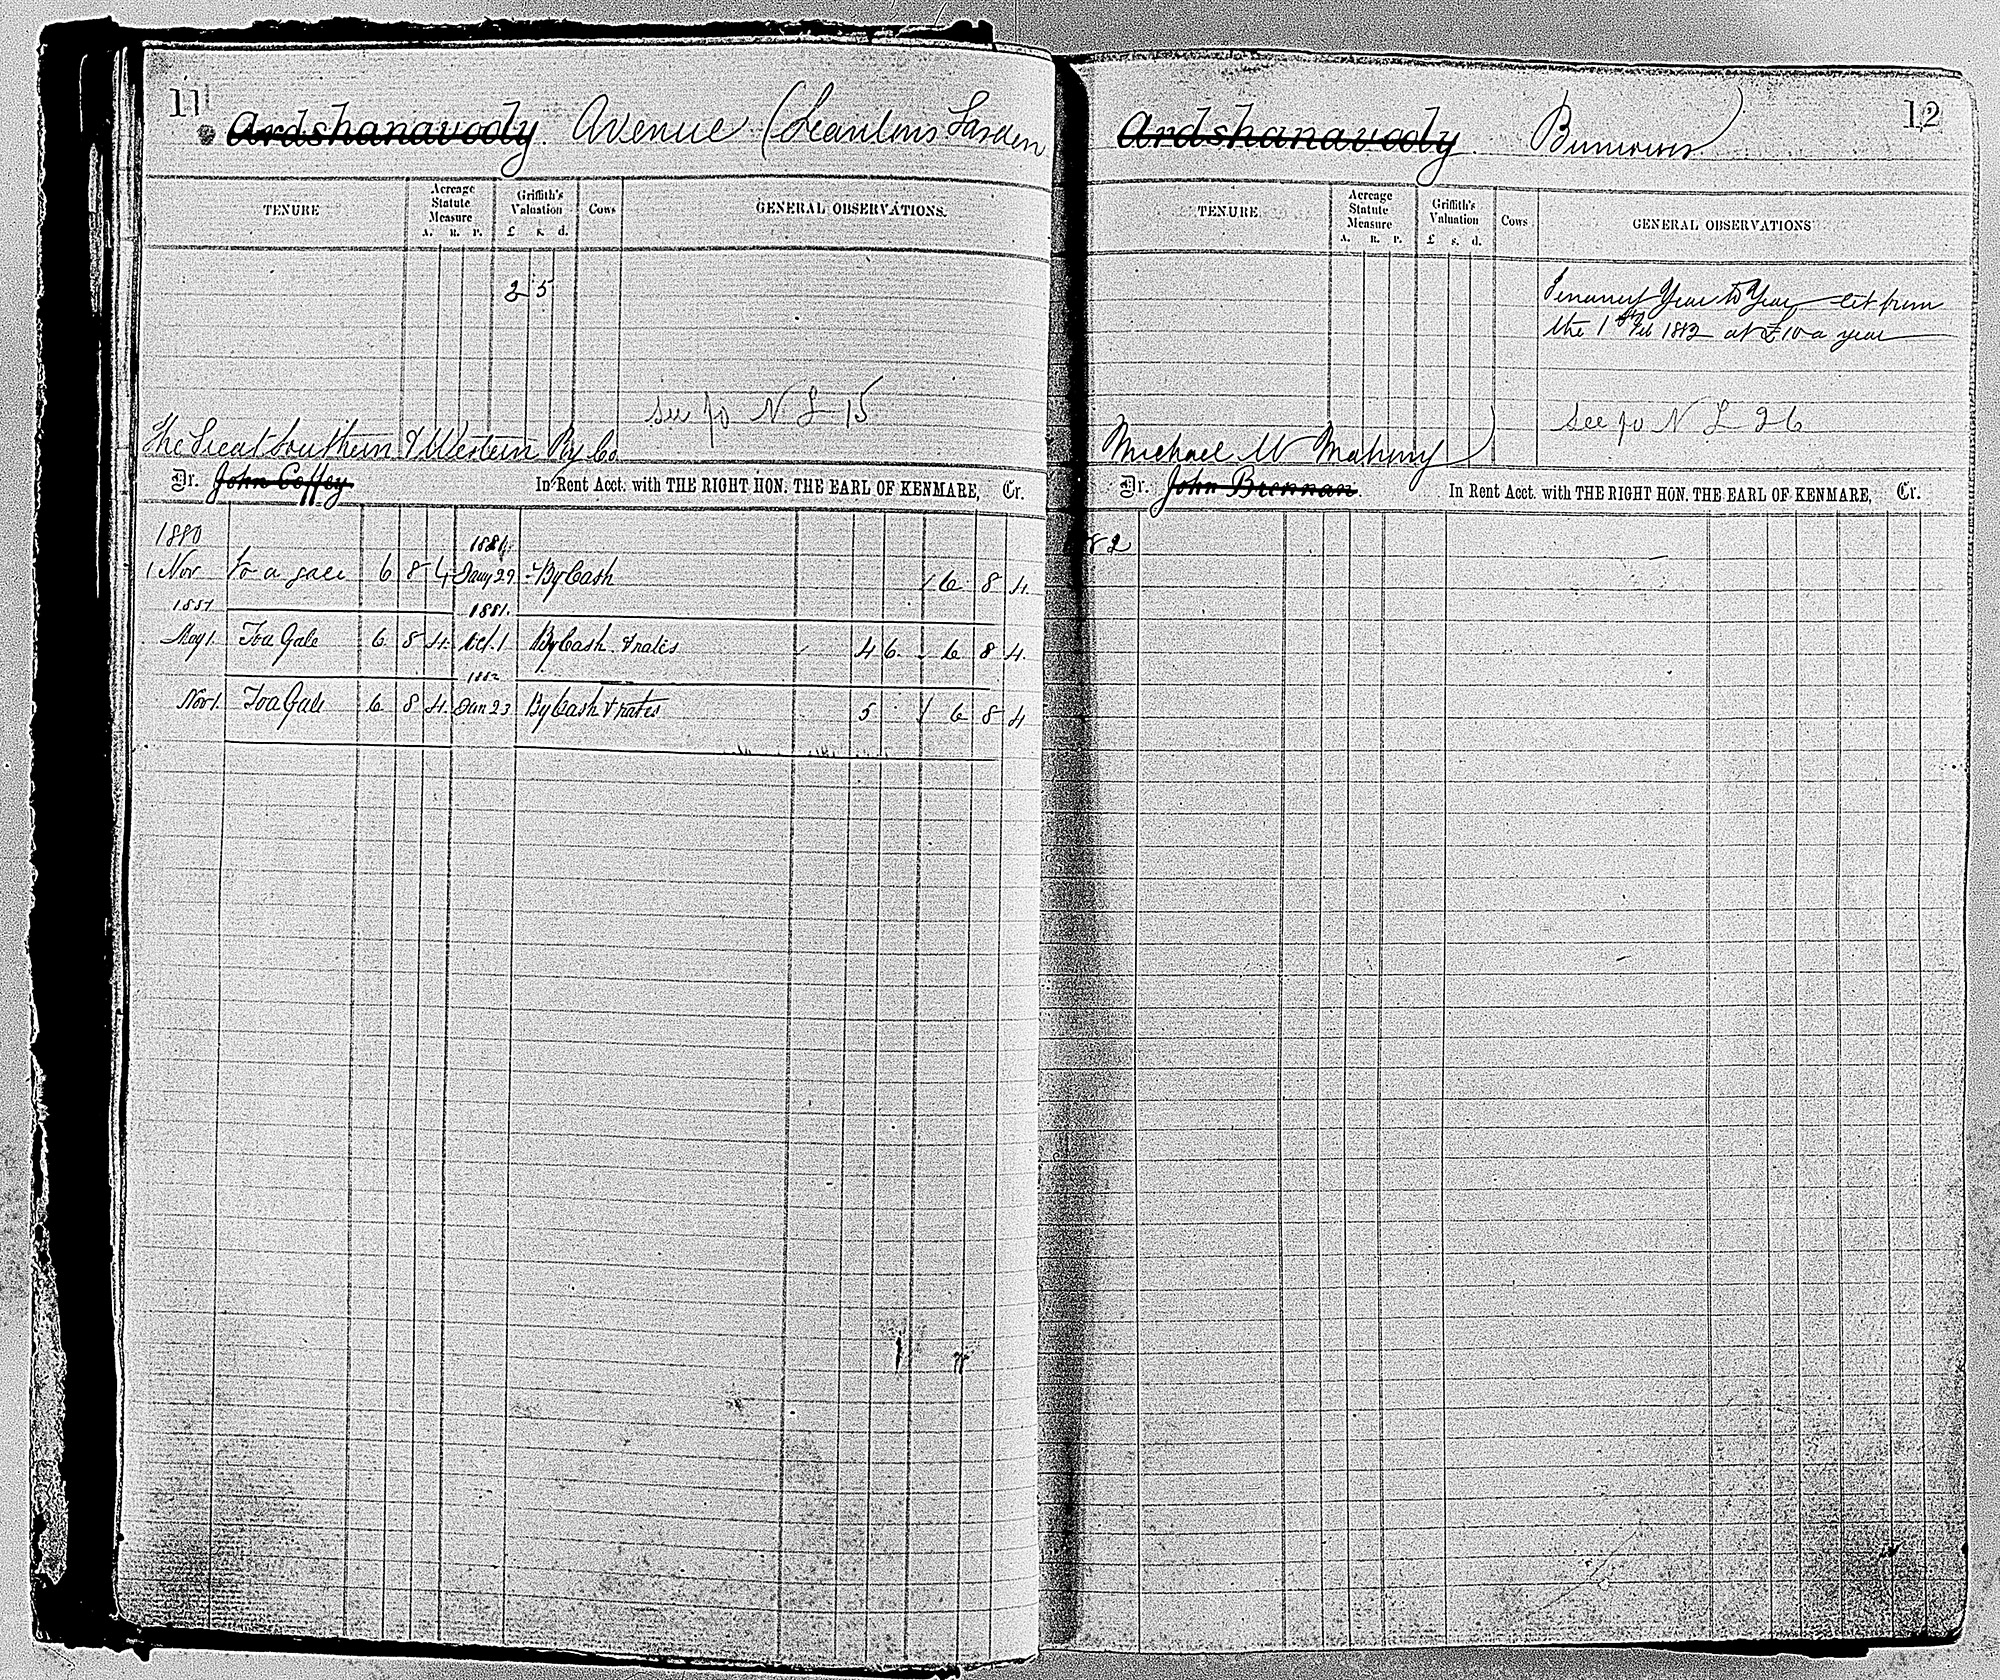 11
Ardshanavooly. Avenue (Scanlons Garden
TENURE
Acreage Statute Measure
A. R. P.
Griffith's Valuation
£ s. d.
Cows
GENERAL OBSERVATIONS.
2 5
see fo N L 15
The Great Southern & Western Ry Co
Dr. John Coffey In Rent Acct. with THE RIGHT HON. THE EARL OF KENMARE, Cr.
1880 1881.
1 Nov To a gale 6 8 4 Jany 29 By Cash 6 8 4
1881 1881.
May 1 To a Gale 6 8 4 Oct. 1 By Cash & rates 4 6 6 8 4
1882
Nov 1 To a Gale 6 8 4 Jan 23 By Cash & rates 5 6 8 4
12
Ardshanavooly.
TENURE
Acreage Statute Measure
A. R. P.
Griffith's Valuation
£ s. d.
Cows
GENERAL OBSERVATIONS
Tenancy Year to Year let from
the 1st Feb 1882 at £10 a year
see fo N L 26
Michael Mc Mahony
Dr. John Brennan. In Rent Acct. with THE RIGHT HON. THE EARL OF KENMARE, Cr.
82